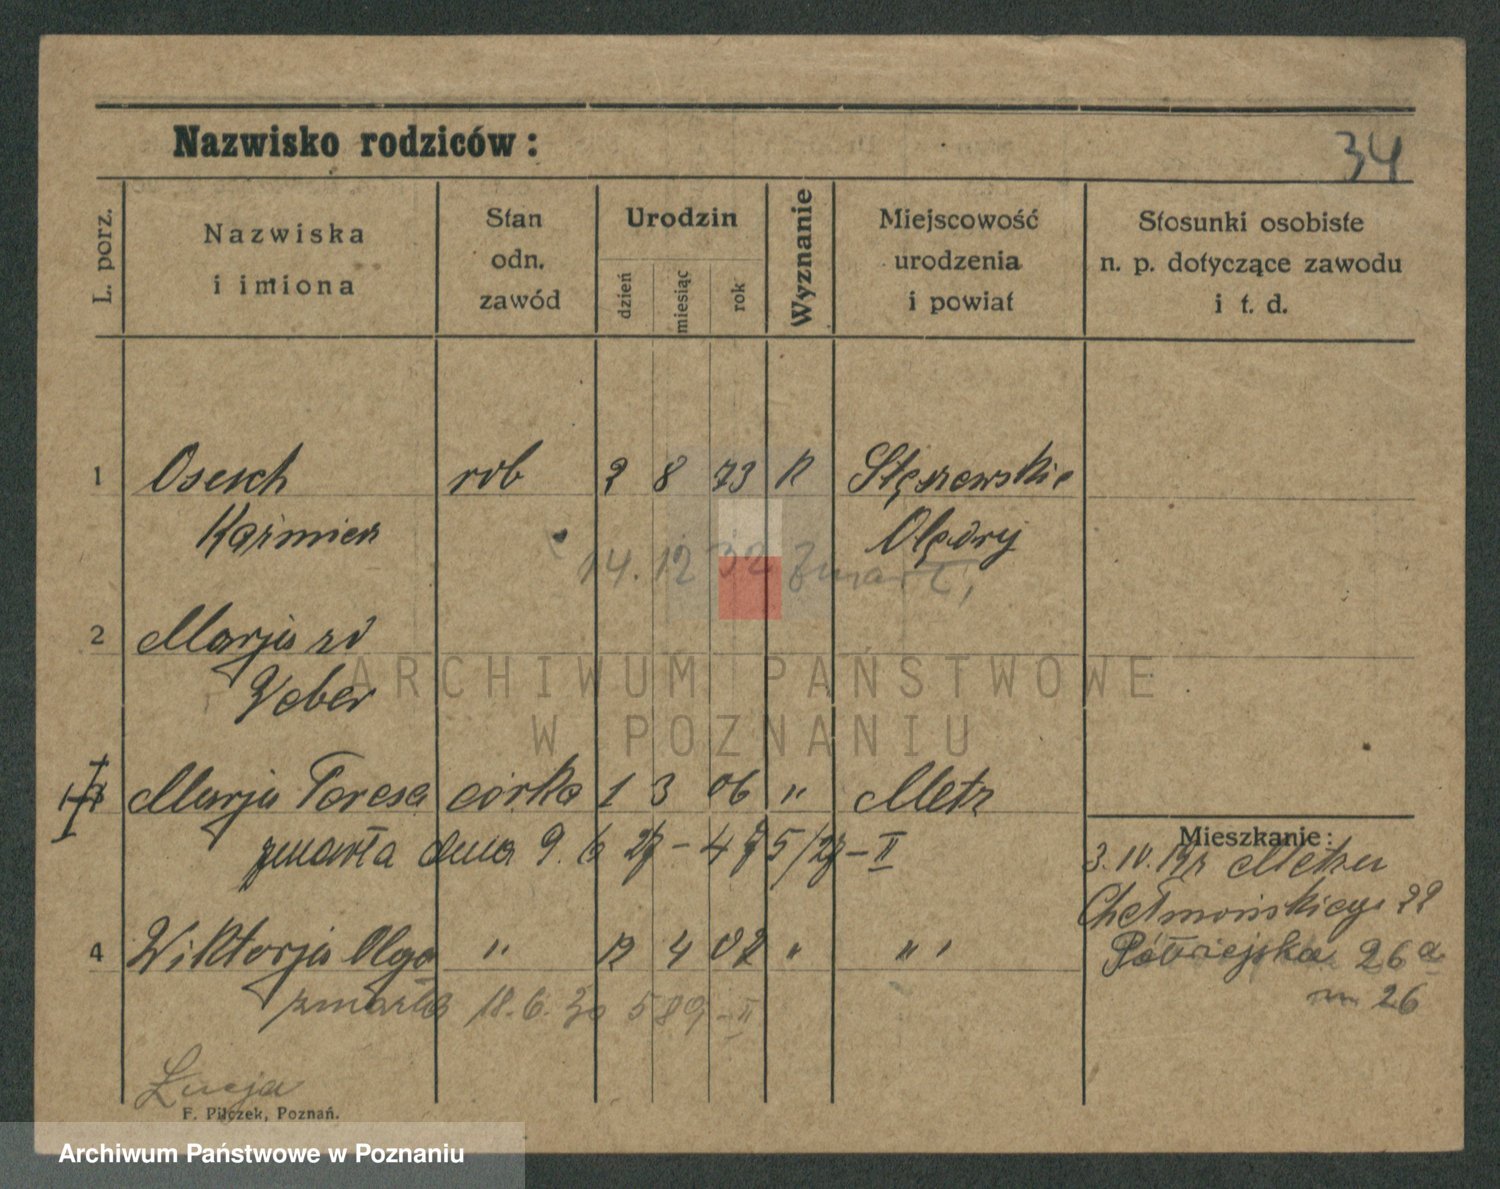 Nazwisko rodziców:
34
L. porz.
Nazwiska
i imiona
Stan
odn.
zawód
Urodzin
dzień
miesiąc
rok
Wyznanie
Miejscowość
urodzenia
i powiat
Stosunki osobiste
n. p. dotyczące zawodu
i t. d.
1 Osesch rob 2 8 73 K Stęszewskie
Kaźmierz Olędry
14.12 32 zmarł,
2 Marja zd
Weber
Marja Teresa córka 1 3 06 " Metz
zmarła dnia 9. 6 27 - 475/27 - II
Mieszkanie:
3. IV. Metzu
Chełmońskiego 22
4 Wiktorja Olga " 12 4 02 " " "
Półwiejska 26a
m 26
zmarła 18.6.30 589 - II
Łucja
F. Pilczek, Poznań.
ARCHIWUM PAŃSTWOWE
W POZNANIU
Archiwum Państwowe w Poznaniu